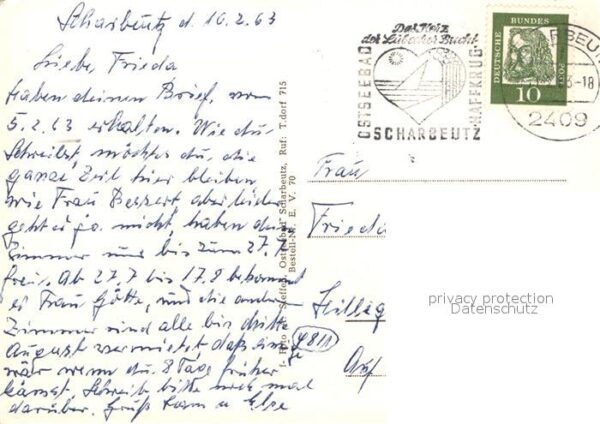 Scharbeutz d. 10.2.63
Liebe, Frieda
Haben deinen Brief, vom
5.2.63 erhalten. Wie du
Schreibst, möchtes du, die
ganze Zeit hier bleiben
wie Frau Beckert, aber leider
geht es ja nicht, haben das
Zimmer nur bis zum 27.7
frei. Ab 27.7 bis 17.8 bekommt
es Frau Götte, und die anderen
Zimmer sind alle bis dritte
August vermietet, das einzige
wär wenn du 8 Tage früher
kämst. Schreib bitte noch mal
darüber. Gruß Hans u Else
Steffen, Ostseebad Scharbeutz, Ruf: T.dorf 715
Bestell-Nr. E. V. 70
Das Herz
der Lübecker Bucht
OSTSEEBAD
HAFFKRUG
SCHARBEUTZ
DEUTSCHE
BUNDES
POST
10
-18
2409
Frau
Frieda
Heilig
(4811)
privacy protection
Datenschutz